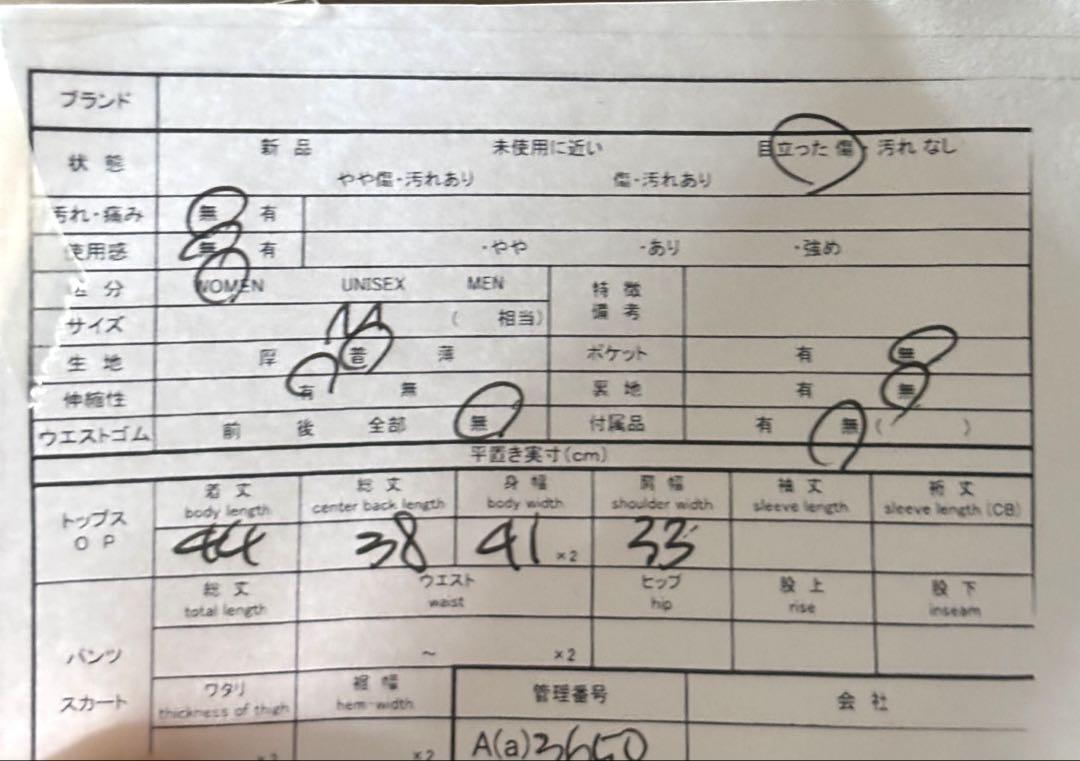 ブランド
状態 新品 未使用に近い 目立った傷・汚れなし
やや傷・汚れあり 傷・汚れあり
汚れ・痛み 無 有
使用感 無 有 ・やや ・あり ・強め
分 WOMEN UNISEX MEN 特徴
備考
サイズ M ( 相当)
生地 厚 普 薄 ポケット 有 無
伸縮性 有 無 裏地 有 無
ウエストゴム 前 後 全部 無 付属品 有 無 ( )
平置き実寸(cm)
トップス
OP
着丈 総丈 身幅 肩幅 袖丈 裄丈
body length center back length body width shoulder width sleeve length sleeve length (CB)
44 38 41 ×2 33
総丈 ウエスト ヒップ 股上 股下
total length waist hip rise inseam
パンツ ～ ×2
スカート ワタリ 裾幅 管理番号 会社
thickness of thigh hem-width
×2 ×2 A(a)3650